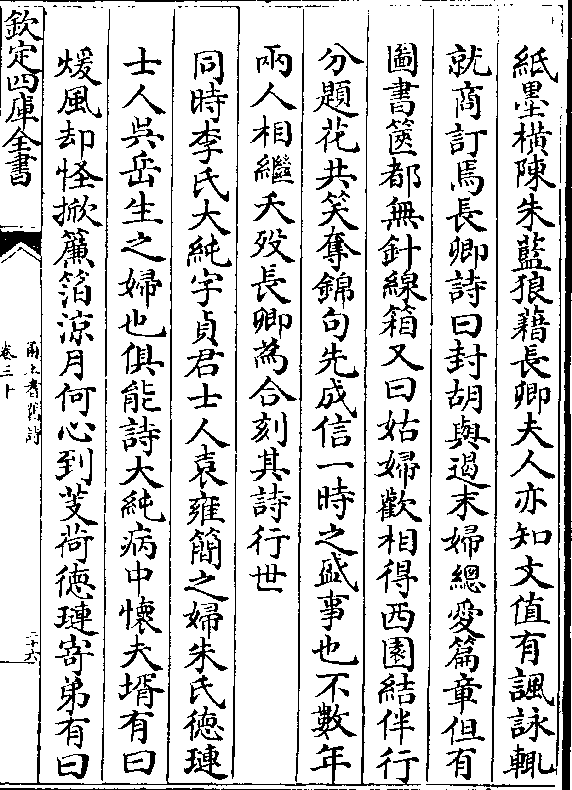 紙墨橫陳朱藍狼藉長卿夫人亦知文值有諷詠輒
就商訂焉長卿詩曰封胡與遏末婦總愛篇章但有
圖書篋都無針線箱又曰姑婦歡相得西園結伴行
分題花共笑奪錦句先成信一時之盛事也不數年
兩人相繼夭歿長卿為合刻其詩行世
同時李氏大純字貞君士人袁雍簡之婦朱氏德璉
士人吳岳生之婦也俱能詩大純病中懷夫壻有曰
煖風却怪掀簾箔涼月何心到芰荷德璉寄弟有曰
欽定四庫全書
甬上耆舊詩
卷三十
二十六